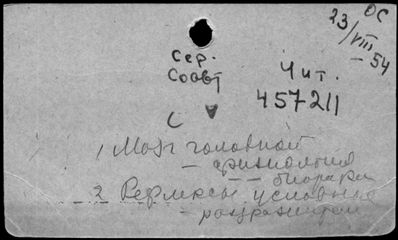 ОС
23/VIII - 54
Сер.
Соавт
Чит.
457211
С
1 Мозг головной
— физиология
— —
2 Рефлексы условные
—